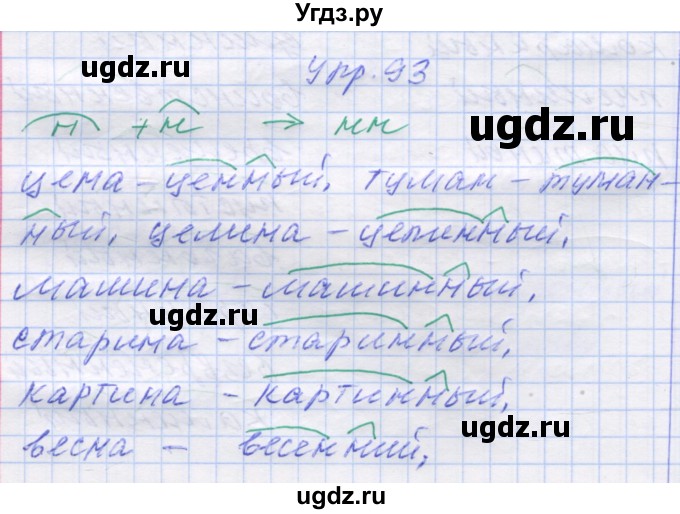 Угдз.ру
ugdz.ru
Упр. 93
ugdz.ru
н + н → нн
цена – ценный, туман – туман-
ный, целина – целинный,
машина – машинный,
ugdz.ru
старина – старинный,
картина – картинный,
ugdz.ru
весна – весенний,
ugdz.ru